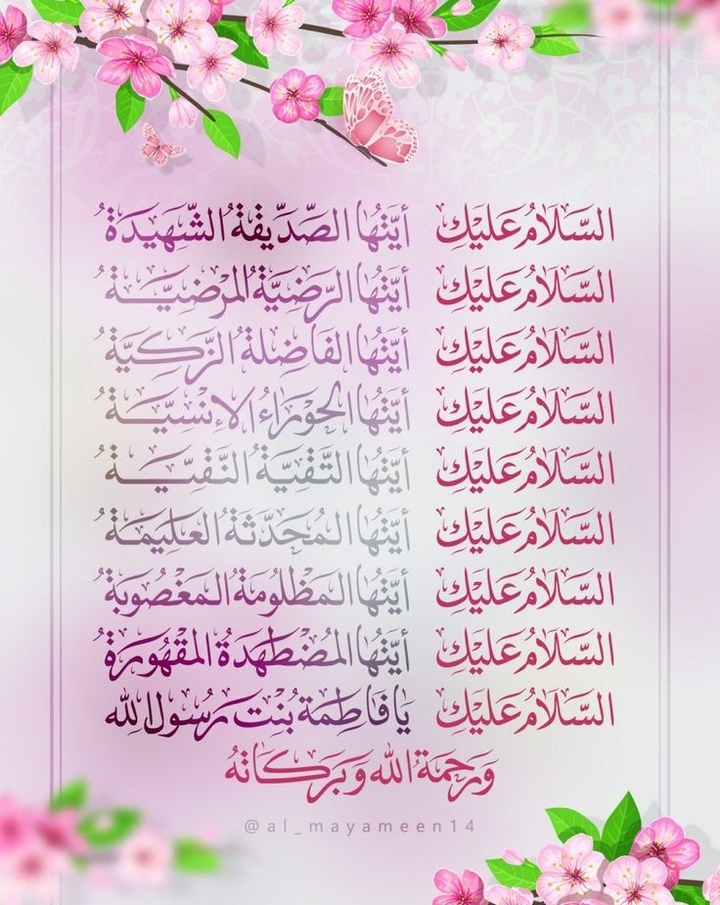 السَّلَامُ عَلَيْكِ أَيَّتُهَا الصِّدِّيقَةُ الشَّهِيدَةُ
السَّلَامُ عَلَيْكِ أَيَّتُهَا الرَّضِيَّةُ الْمَرْضِيَّةُ
السَّلَامُ عَلَيْكِ أَيَّتُهَا الفَاضِلَةُ الزَّكِيَّةُ
السَّلَامُ عَلَيْكِ أَيَّتُهَا الحَوْرَاءُ الإِنْسِيَّةُ
السَّلَامُ عَلَيْكِ أَيَّتُهَا التَّقِيَّةُ النَّقِيَّةُ
السَّلَامُ عَلَيْكِ أَيَّتُهَا المُحَدَّثَةُ العَلِيمَةُ
السَّلَامُ عَلَيْكِ أَيَّتُهَا المَظْلُومَةُ المَغْصُوبَةُ
السَّلَامُ عَلَيْكِ أَيَّتُهَا المُضْطَهَدَةُ المَقْهُورَةُ
السَّلَامُ عَلَيْكِ يَا فَاطِمَةُ بِنْتَ رَسُولِ اللهِ
وَرَحْمَةُ اللهِ وَبَرَكَاتُهُ
@al_mayameen14